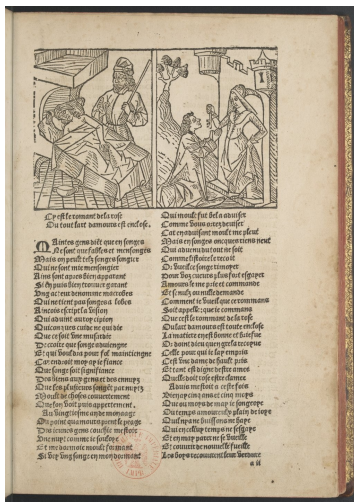 Cy est le rommant de la rose
Ou tout lart damours est enclose.
Maintes gens diẽt que en songes
Ne sont que fables et mensonges
Mais on peult telz songes songier
Qui ne sont mie mensongier
Ains sont apres bien apparant
Si en puis bien trouuer garant
Ung acteur denomme macrobes
Qui ne tient pas songes a lobes
Aincois escript la vision
Qui aduint au roy cipion
Quiconques cuide ne qui die
Que ce soit une musardie
De croire que songe aduiengne
Et qui vouldra pour fol maintiengne
Car endroit moy ay ie fiance
Que songe soit signifiance
Des biens aux gens et des ennuyz
Que les plusieurs songẽt par nuytz
Moult de choses couuertement
Que lon voit puis appertement.
Au vingtiesme an de mon aage
Ou point quamours prent le peage
Des ieunes gens couche mestoye
Une nuyt comme ie souloye
Et me dormoie moult forment
Si vey ung songe en mon dormant
Qui moult fut bel a aduiser
Comme vous orrez deuiser
Car en aduisant moult me pleut
Mais en songes oncques riens neut
Qui aduenu du tout ne soit
Comme listoire le recoit
Or vueil ce songe rimoyer
Pour voz cueurs plus fort esgayer
Amours le me prie et commande
Et se nulz ou nulle demande
Comment ie vueil que ce rommans
Soit appelle: que ie commans
Que cest le rommant de la rose
Ou lart damours est toute enclose
La matiere en est bonne et briefue
Or doint dieu quen gre la recoyue
Celle pour qui ie lay empris
Cest une dame de hault pris
Et tant est digne destre amee
Quelle doit rose estre clamee
Aduis mestoit a ceste fois
Bien y a cinq ans et cinq moys
Que ou moys de may ie songeoye
Ou temps amoureux plain de ioye
Que en may pare ne se vueille
Et couurir de nouuelle fueille
Les boys recouurent leur verdure
a ii